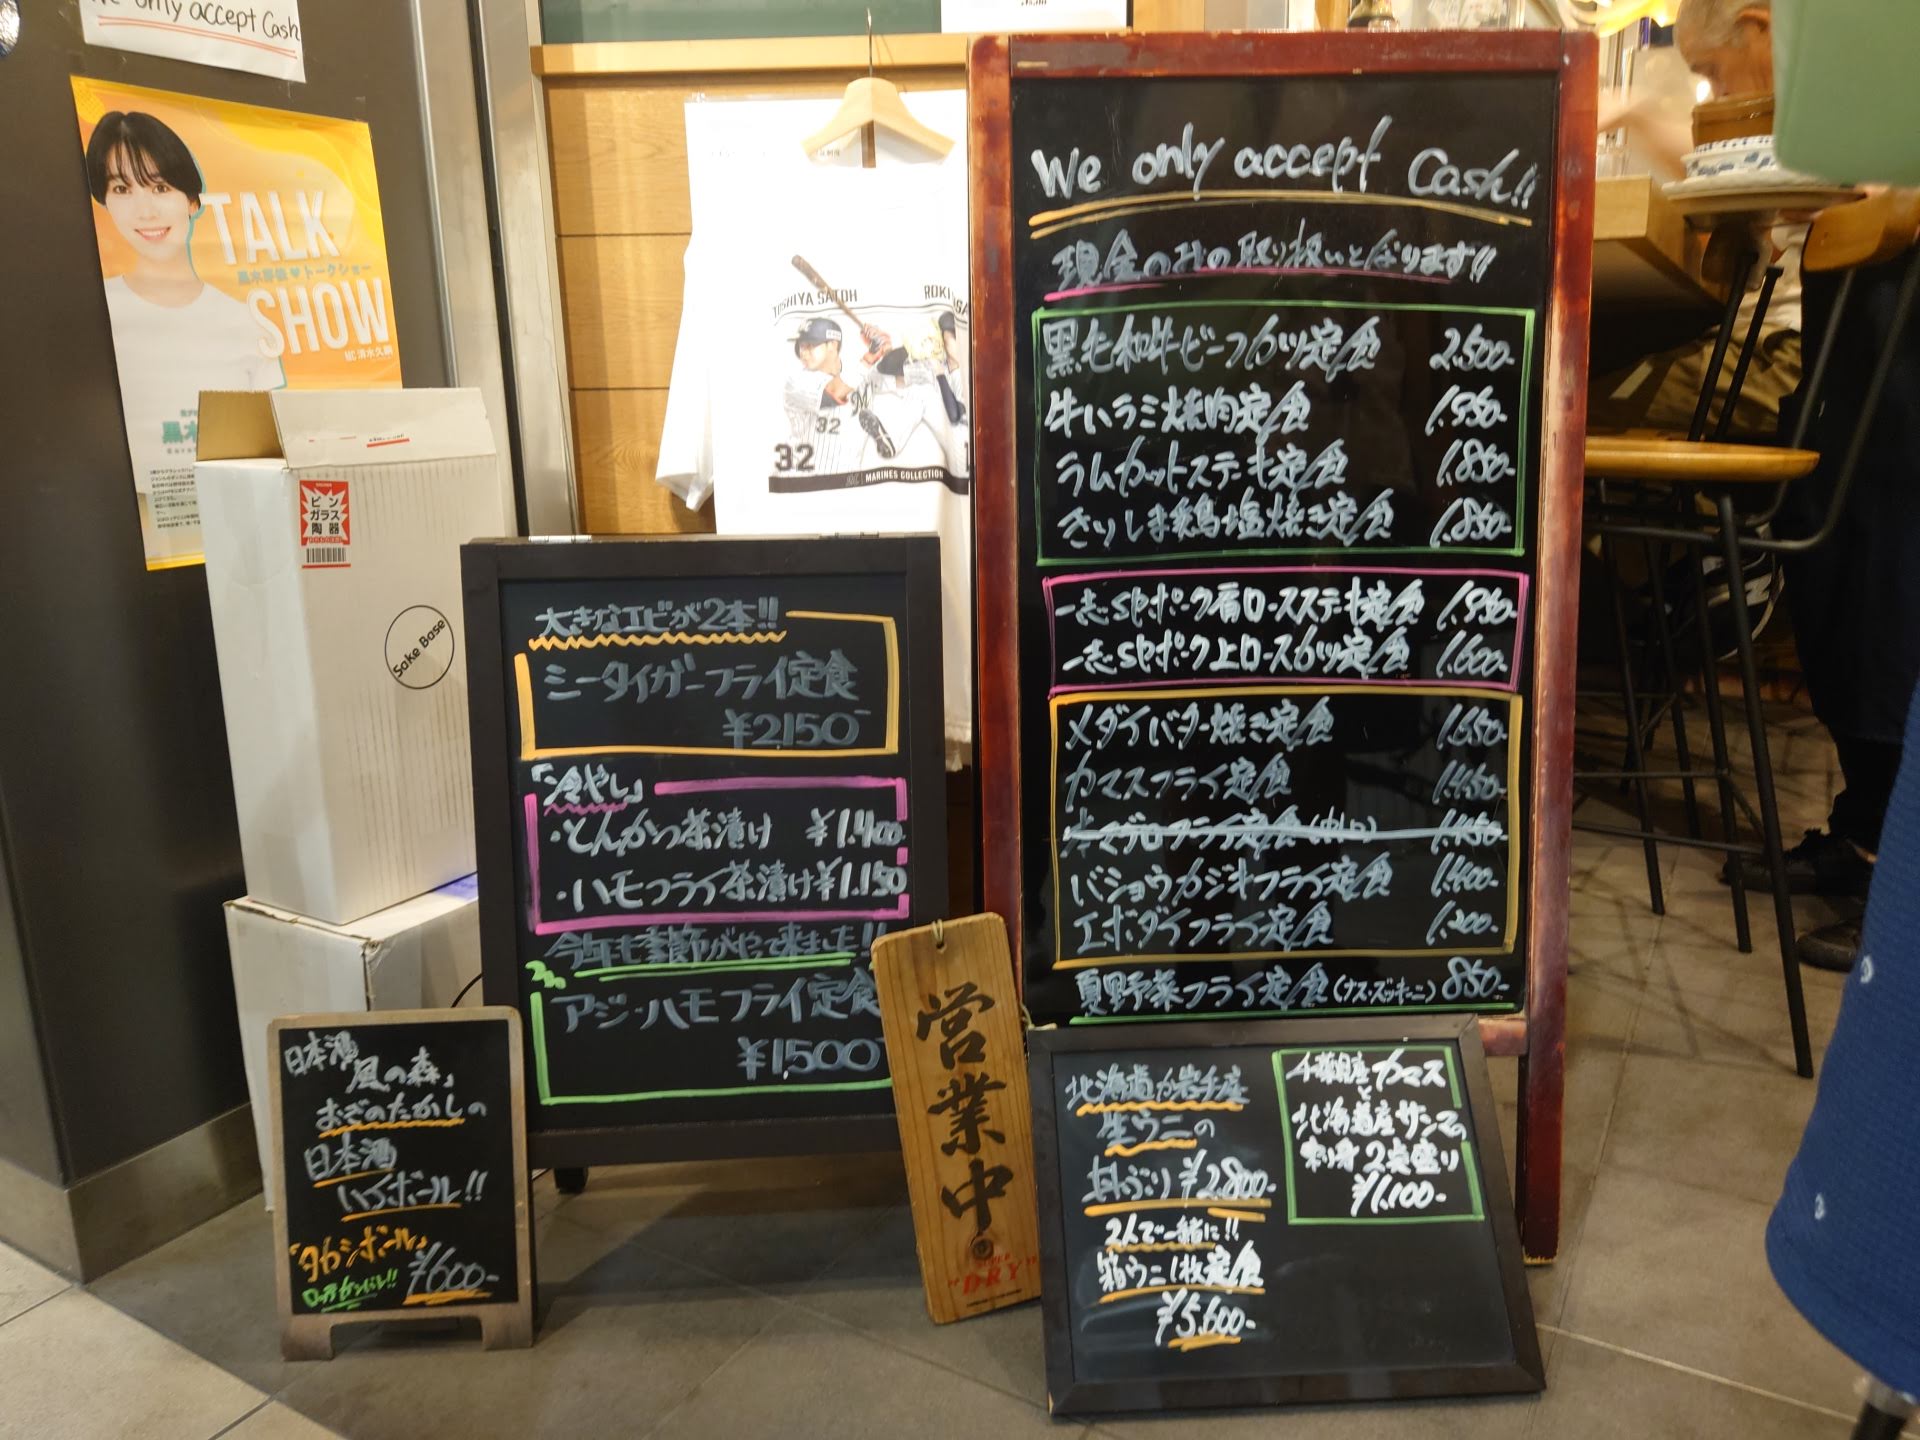 We only accept Cash
TALK
黒木 ♥ トークショー
SHOW
ビン
ガラス
陶器
Sake Base
TOSHIYA SATOH
ROKI
32
32
MARINES COLLECTION
We only accept Cash!!
現金のみの取り扱いとなります!!
黒毛和牛ビーフカツ定食 2.500-
牛ハラミ焼肉定食
ラムカットステーキ定食 1.850-
きりしま鶏塩焼き定食 1.850-
一志SPポーク肩ロースステーキ定食
一志SPポーク上ロースカツ定食 1.600-
メダイバター焼き定食 1.650-
カマスフライ定食 1.450-
マグロフライ定食(中トロ) 1.450-
バショウカジキフライ定食 1.400-
エボダイフライ定食 1.200-
夏野菜フライ定食(ナス・ズッキーニ) 850-
大きなエビが2本!!
シータイガーフライ定食
¥2150-
「冷やし」
・とんかつ茶漬け ¥1.400-
・ハモフライ茶漬け ¥1.150
今年も季節がやって来ました!!
アジ・ハモフライ定食
¥1500-
日本酒
「風の森」
おざのたかしの
日本酒
ハイボール!!
「タカシボール」
¥600-
営業中
"DRY"
北海道か岩手産
生ウニの
丼ぶり ¥2.800-
2人で一緒に!!
箱ウニ1枚定食
¥5.600-
千葉県産カマス
と
北海道産サンマの
刺身2点盛り
¥1.100-